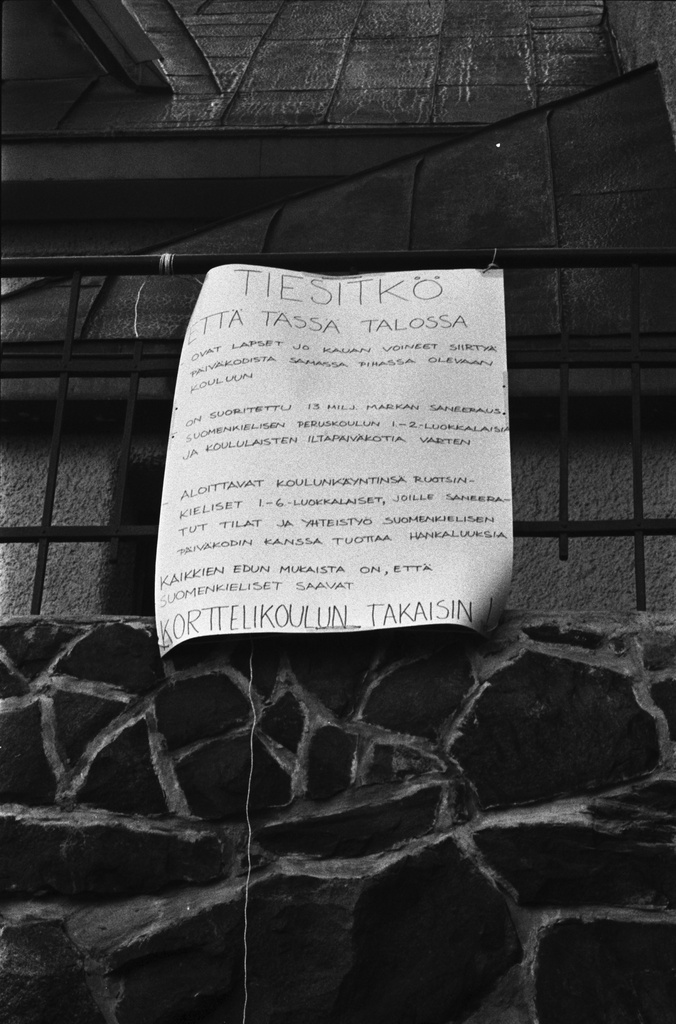 TIESITKÖ
ETTÄ TÄSSÄ TALOSSA
OVAT LAPSET JO KAUAN VOINEET SIIRTYÄ
PÄIVÄKODISTA SAMASSA PIHASSA OLEVAAN
KOULUUN
- ON SUORITETTU 13 MILJ. MARKAN SANEERAUS
SUOMENKIELISEN PERUSKOULUN 1.-2-LUOKKALAISIA
JA KOULULAISTEN ILTAPÄIVÄKOTIA VARTEN
- ALOITTAVAT KOULUNKÄYNTINSÄ RUOTSIN-
KIELISET 1.-6.-LUOKKALAISET, JOILLE SANEERA-
TUT TILAT JA YHTEISTYÖ SUOMENKIELISEN
PÄIVÄKODIN KANSSA TUOTTAA HANKALUUKSIA
KAIKKIEN EDUN MUKAISTA ON, ETTÄ
SUOMENKIELISET SAAVAT
KORTTELIKOULUN TAKAISIN !